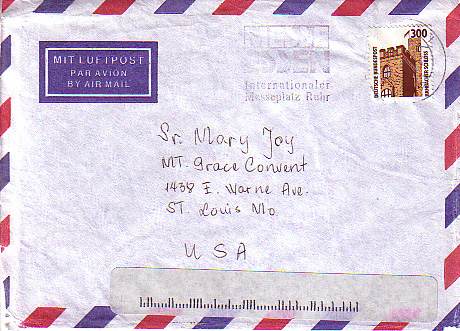 MESSE
ESSEN
Internationaler
Messeplatz Ruhr
300
DEUTSCHE BUNDESPOST
HAMBACHER SCHLOSS
MIT LUFTPOST
PAR AVION
BY AIR MAIL
Sr. Mary Joy
MT. Grace Convent
1438 E. Warne Ave.
ST. Louis Mo.
USA